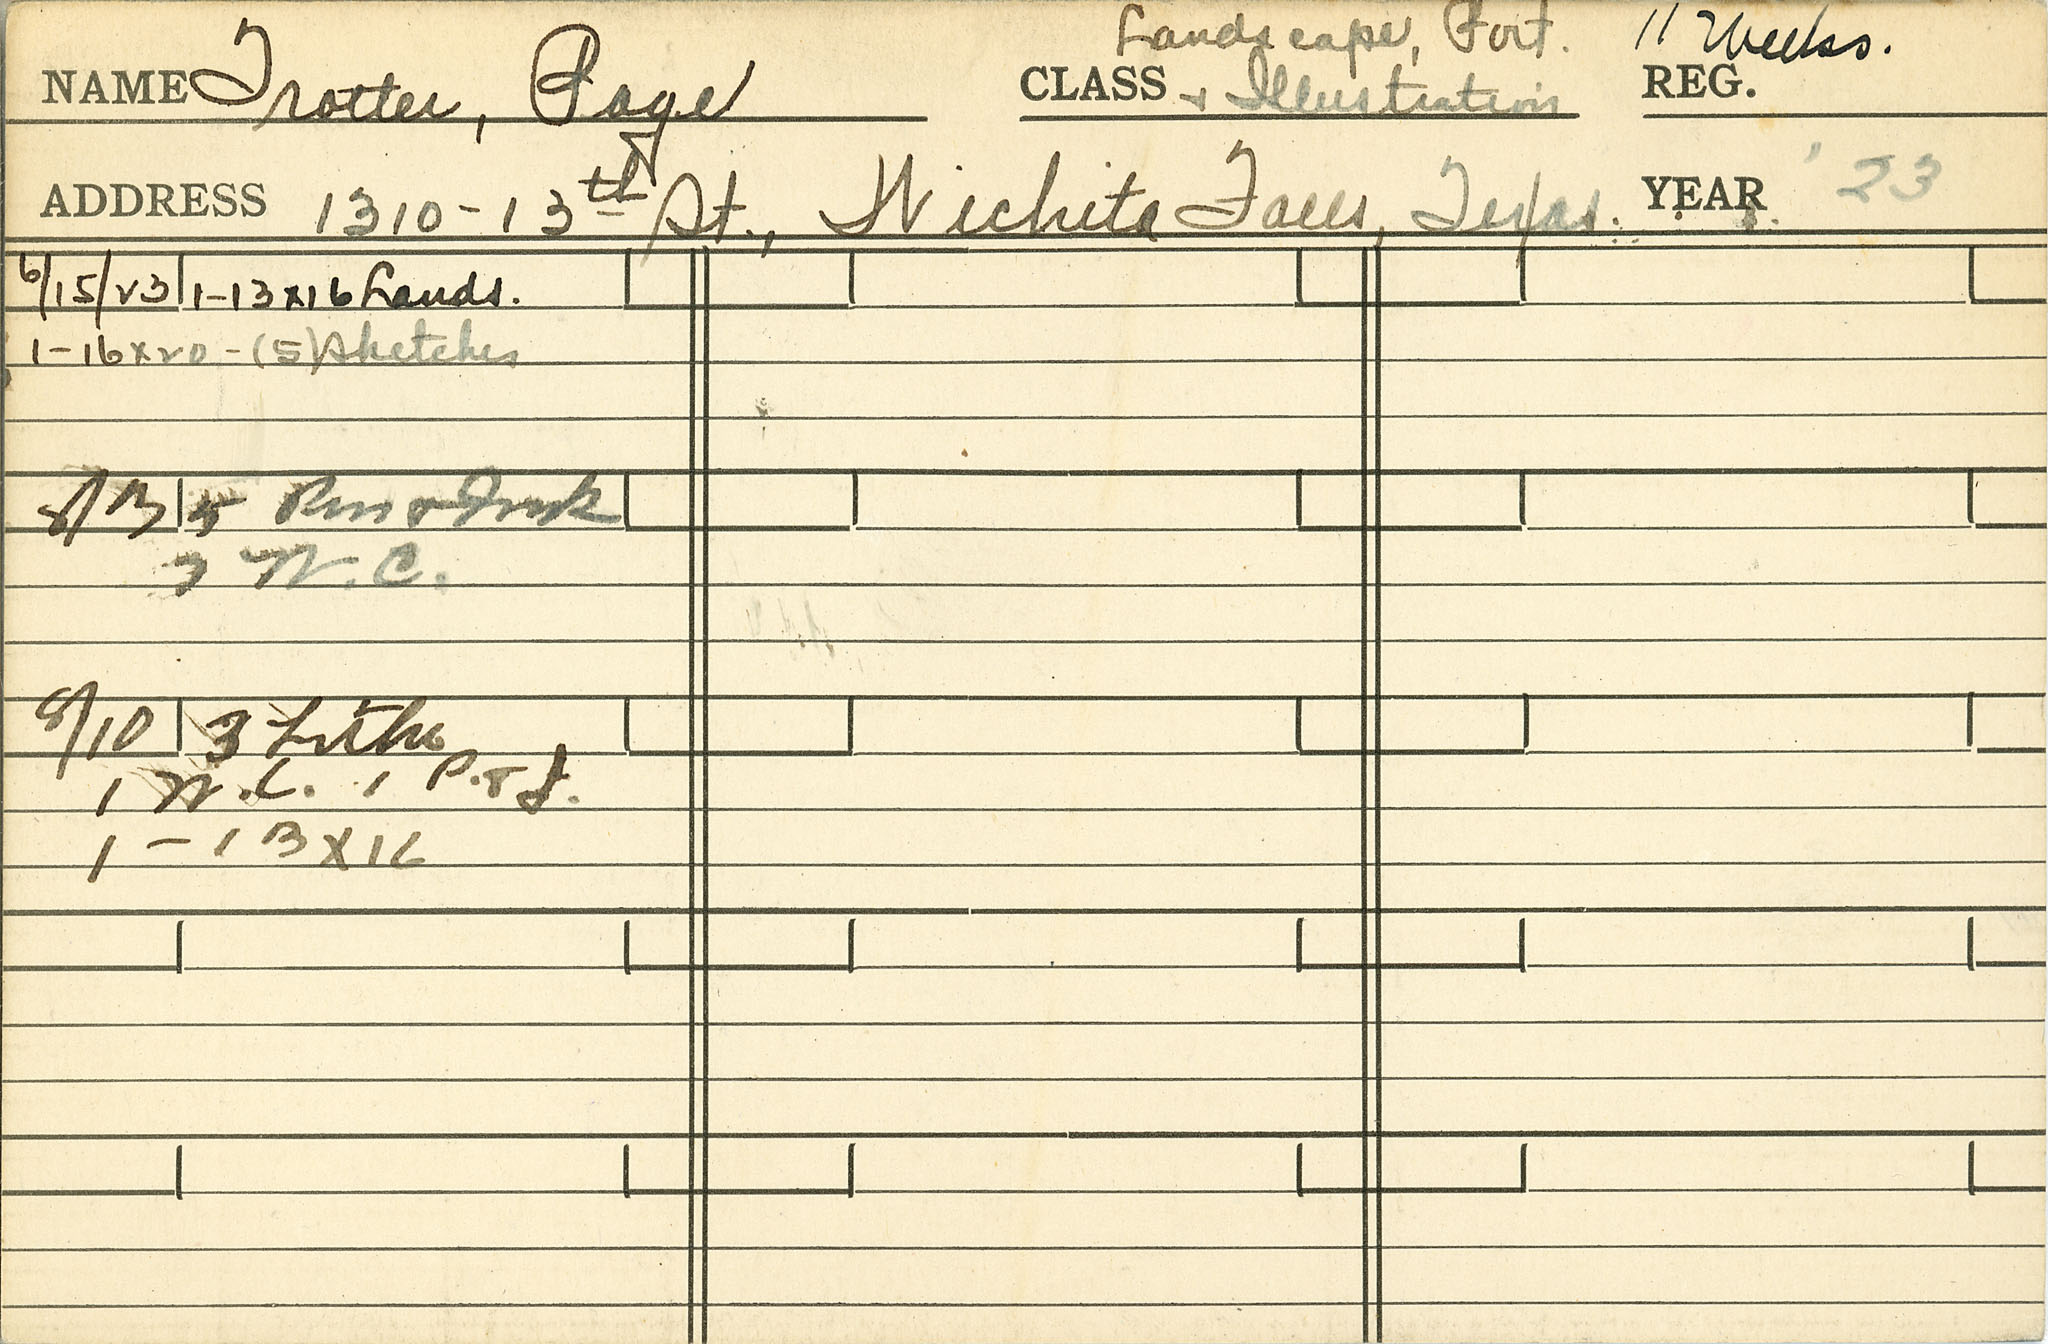 Landscape, Port. 11 Weeks.
NAME Trotter, Page CLASS & Illustration REG.
ADDRESS 1310-13th St., Wichita Falls, Texas. YEAR '23
6/15/23 1-13x16 Lands.
1-16x20-(5)Sketches
8/3 5 Pen & Ink
3 W.C.
8/10 3 Litho
1 W.C. 1 P. & I.
1-13x16